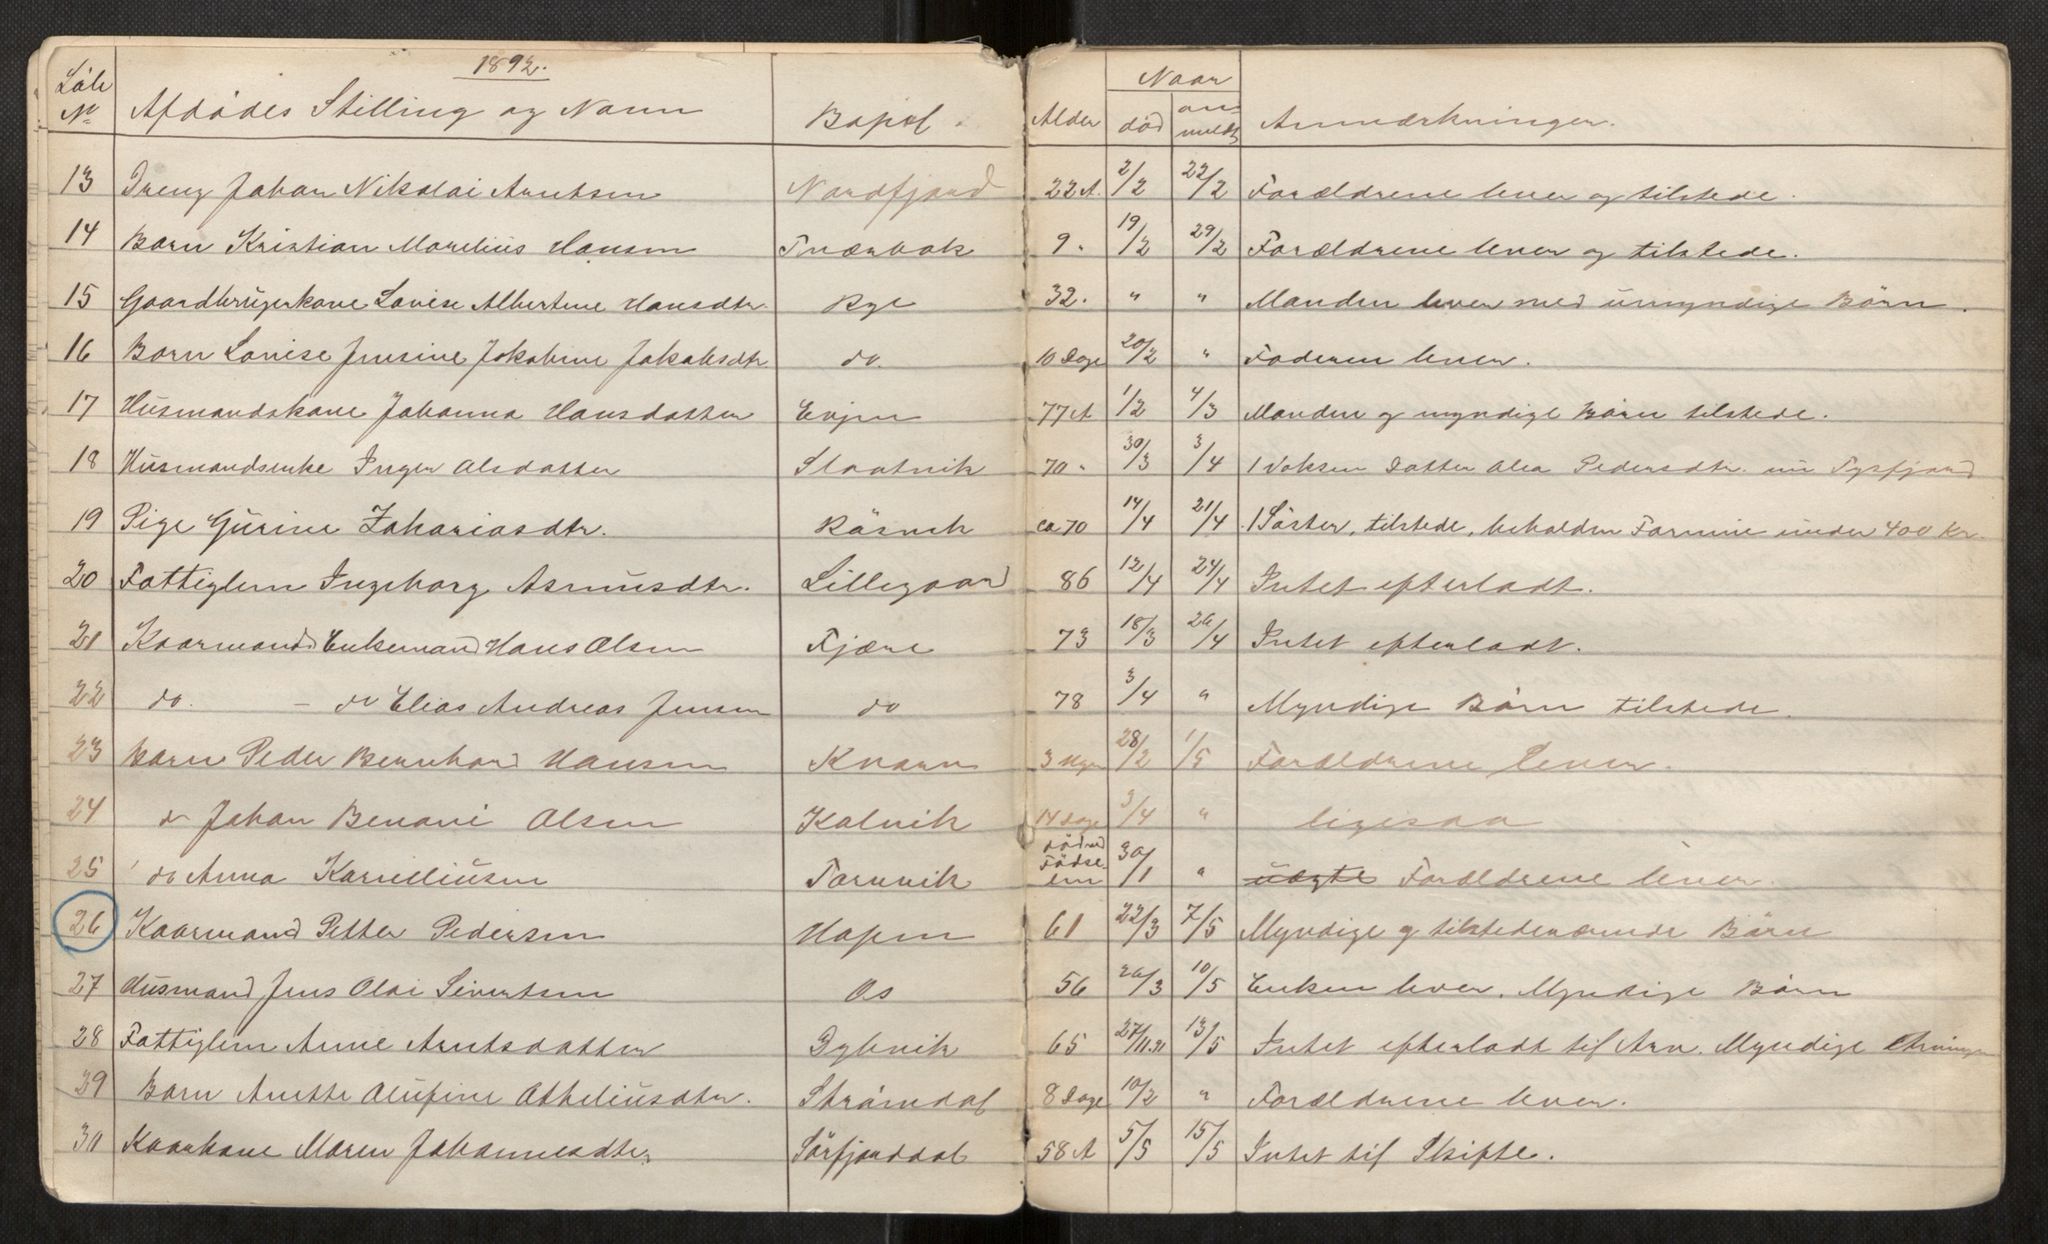 1892.
Löbe No Afdödes Stilling og Navn Bopæl. Alder Naar död anmeldt Anmærkninger.
13 Dreng Johan Nikolai Arntsen Nordfjord 22 A. 2/2 22/2 Forældrene lever og tilstede.
14 Barn Kristian Marelius Hansen Tværbak 9 " 19/2 29/2 Forældrene lever og tilstede.
15 Gaardbrugerkone Lovise Albertine Hansdtr. Rye 32 " " " Manden lever med umyndige Börn.
16 Barn Lovise Jensine Jakobine Jakobsdtr. do. 10 Dage 20/2 " Faderen lever.
17 Husmandskone Johanna Hansdatter Evjen 77 A 1/2 4/3 Manden og myndige Börn tilstede.
18 Husmandsenke Inger Olsdatter Slaatvik 70 " 30/3 3/4 1 Voksen Datter Olea Pedersdtr. i Tysfjord
19 Pige Gurine Zakariasdtr. Räsvik ca 70 14/4 21/4 1 Söster, tilstede, beholden Formue under 400 Kr.
20 Fattiglem Ingeborg Asmusdtr. Lillegaard 86 12/4 24/4 Intet efterladt.
21 Kaarmand Enkemand Hans Olsen Fjære 73 18/3 26/4 Intet efterladt.
22 do. - do Elias Andreas Jensen do 78 3/4 " Myndige Börn tilstede.
23 Barn Peder Bernhard Hansen Kvarv 3 Uger 28/2 1/5 Forældrene lever.
24 do Johan Benoni Olsen Kalvik 14 Dage 3/4 " ligesaa
25 do Anna Korneliusen Tørnvik död ved Födselen 30/1 " uægte Forældrene lever.
26 Kaarmand Petter Pedersen Hopen 61 22/3 7/5 Myndige og tilstedeværende Börn
27 Husmand Jens Olai Sivertsen Os 56 26/3 10/5 Enken lever. Myndige Börn
28 Fattiglem Anne Arntsdatter Dybvik 65 27/11.91 13/5 Intet efterladt til Arv. Myndige Arvinger
29 Barn Anette Olufine Otheliusdtr. Strömdal 8 Dage 10/2 " Forældrene lever.
30 Kaarkone Maren Johannesdtr. Sörfjorddal 58 A 5/5 15/5 Intet til Skifte.